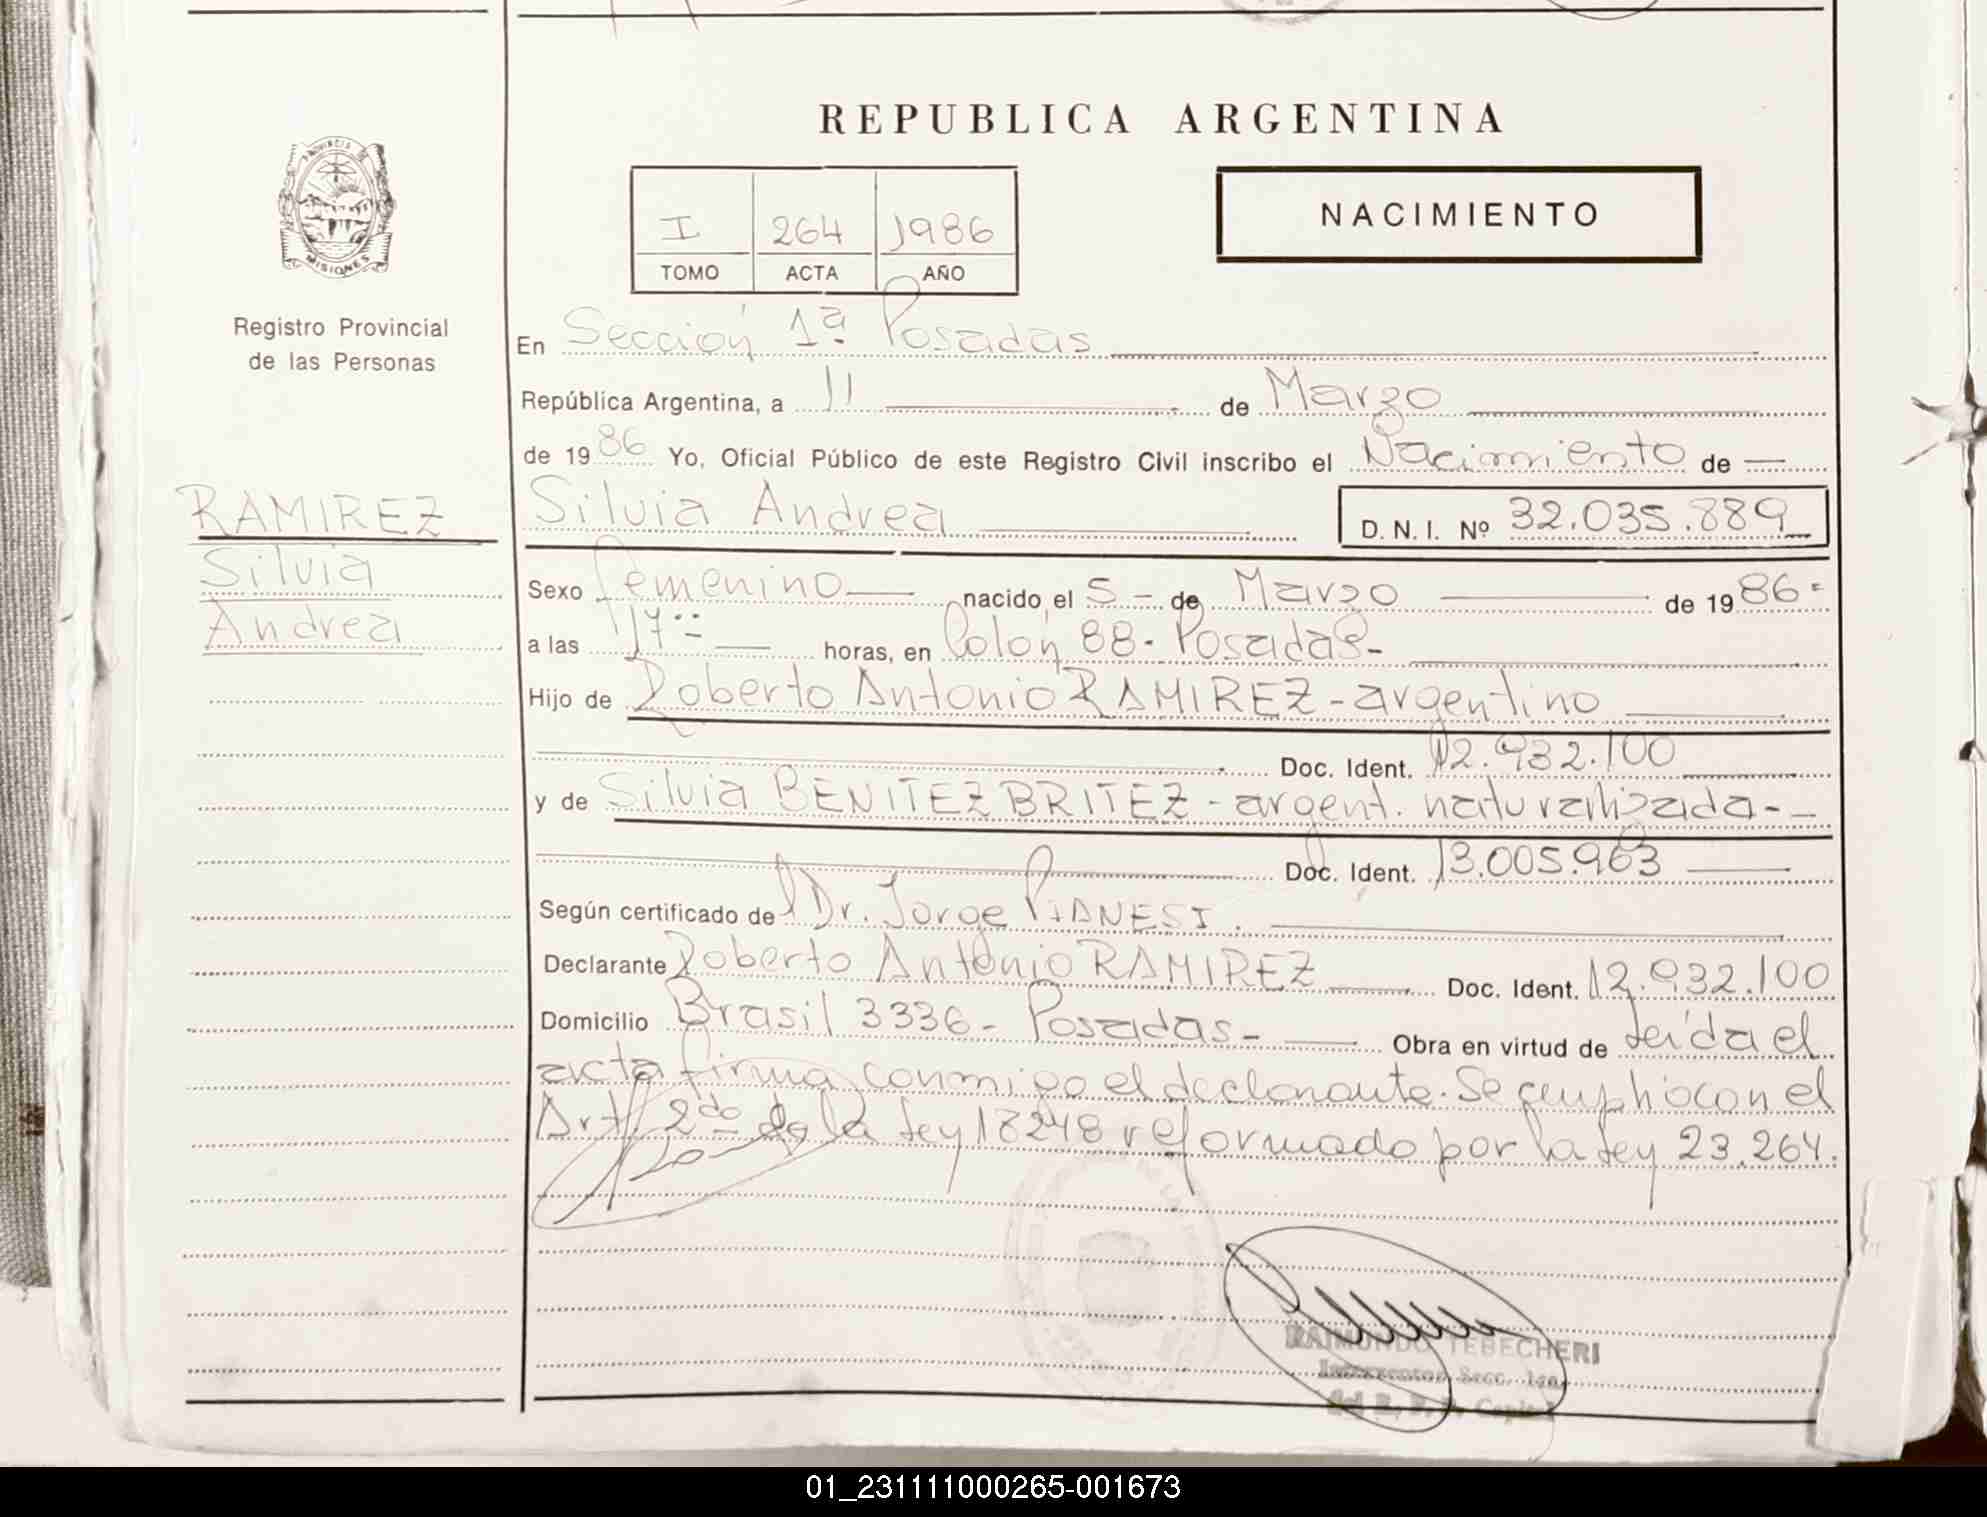 REPUBLICA ARGENTINA
PROVINCIA DE
MISIONES
Registro Provincial
de las Personas
I 264 1986
TOMO ACTA AÑO
NACIMIENTO
En Sección 1ª Posadas
República Argentina, a 11 de Marzo
de 1986 Yo, Oficial Público de este Registro Civil inscribo el Nacimiento de
RAMIREZ
Silvia
Andrea
Silvia Andrea D.N.I. Nº 32.035.889
Sexo femenino nacido el 5 - de Marzo de 1986=
a las 17 horas, en Colón 88- Posadas-
Hijo de Roberto Antonio RAMIREZ - argentino
Doc. Ident. 12.932.100
y de Silvia BENITEZ BRITEZ - argent. naturalizada-
Doc. Ident. 13.005.963
Según certificado del Dr. Jorge PIANESI.
Declarante Roberto Antonio RAMIREZ Doc. Ident. 12.932.100
Domicilio Brasil 3336- Posadas- Obra en virtud de leída el
acta firma conmigo el declarante. Se cumplió con el
Art. 2do de la Ley 18248 reformado por la Ley 23.264.
RAIMUNDO TEBECHERI
Interventor Secc. 1ra.
01_231111000265-001673